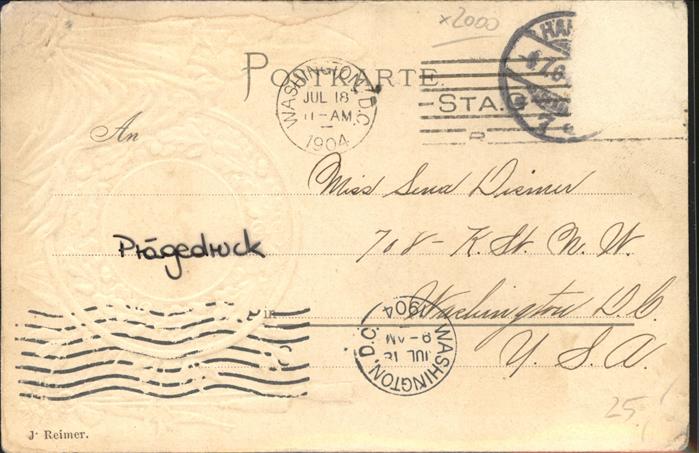 ×2000
POSTKARTE.
WASHINGTON, D.C.
JUL 18
11-AM
1904
STA. G
HA
An
Miss Lena Diemer
708- K St. N. W.
Prägedruck
in
Washington D.C.
WASHINGTON, D.C.
JUL 18
9-AM
1904
U. S. A.
25.
J. Reimer.